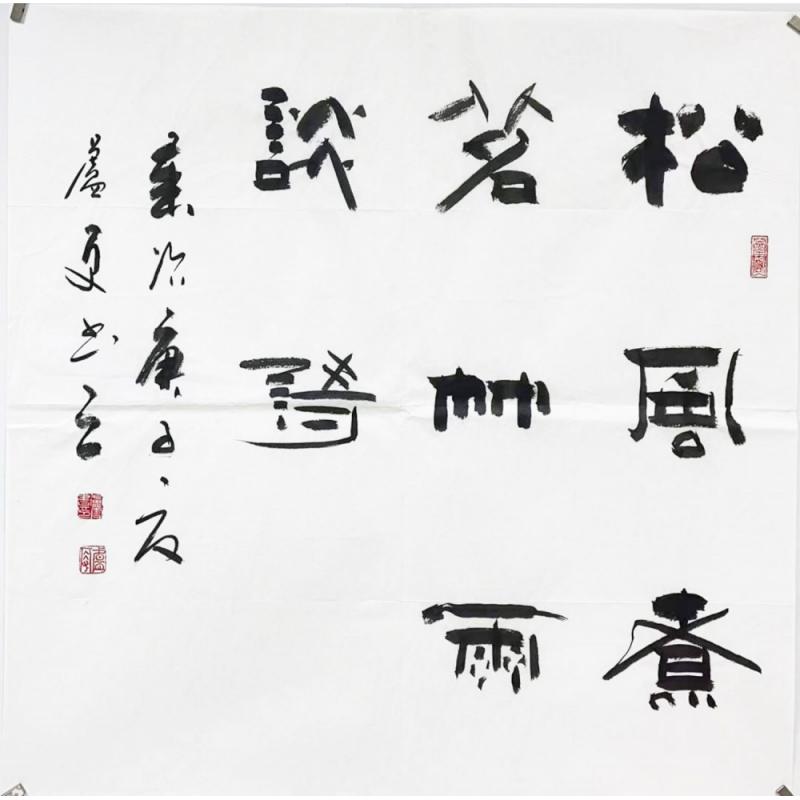 松風煮
茗竹雨
談詩
歲次庚子夏
书之